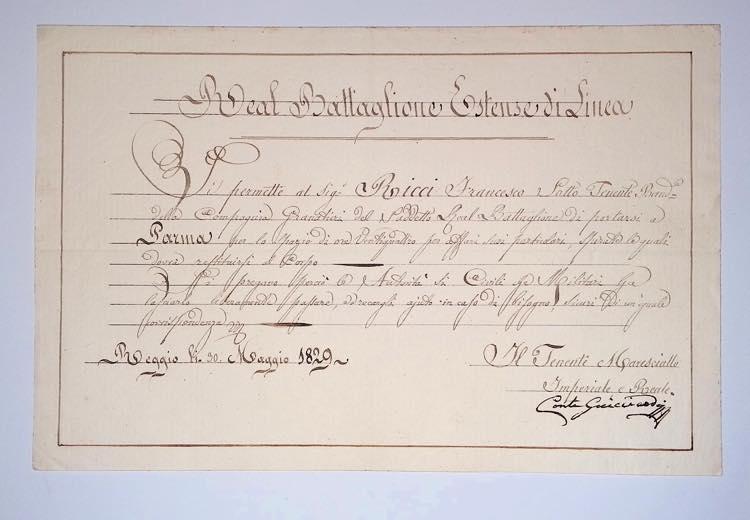 Real Battaglione Estense di Linea
Si permette al Sig.r Ricci Francesco Sotto Tenente Band.a
della Compagnia Granatieri del Suddetto Real Battaglione di portarsi a
Parma per lo spazio di ore Ventiquattro per affari suoi particolari, spirate le quali
dovrà restituirsi al Corpo
Si pregano perciò le Autorità sì Civili che Militari
lasciarlo liberamente passare, ed recargli ajuto in caso di bisogno, sicuri di un'eguale
corrispondenza
Reggio li 30. Maggio 1829
Il Tenente Maresciallo
Imperiale e Reale
Conte Guicciardi